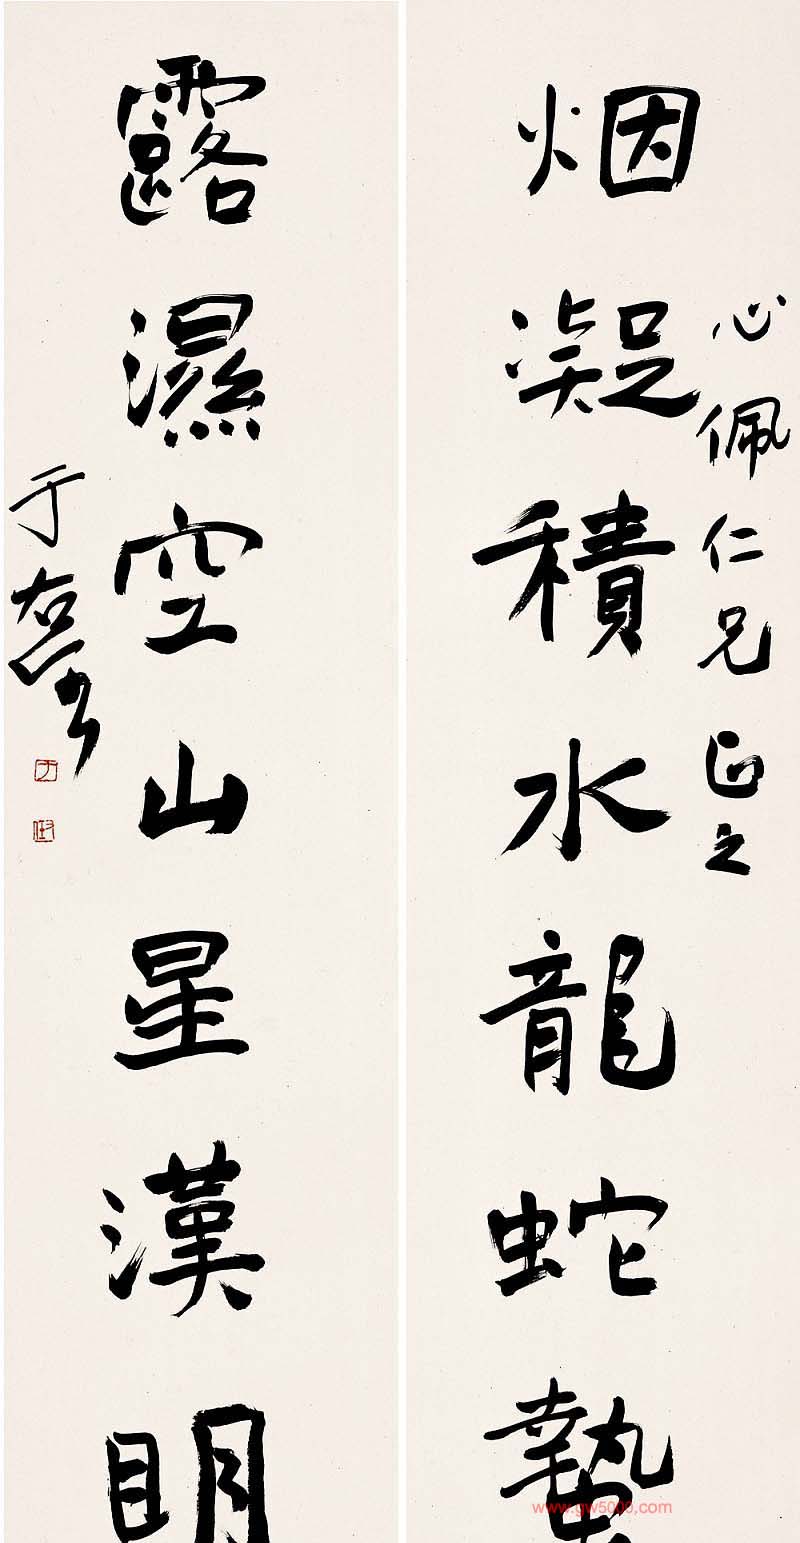 心佩仁兄正之
烟凝積水龍蛇蟄
露濕空山星漢明
于右任
www.gw5000.com